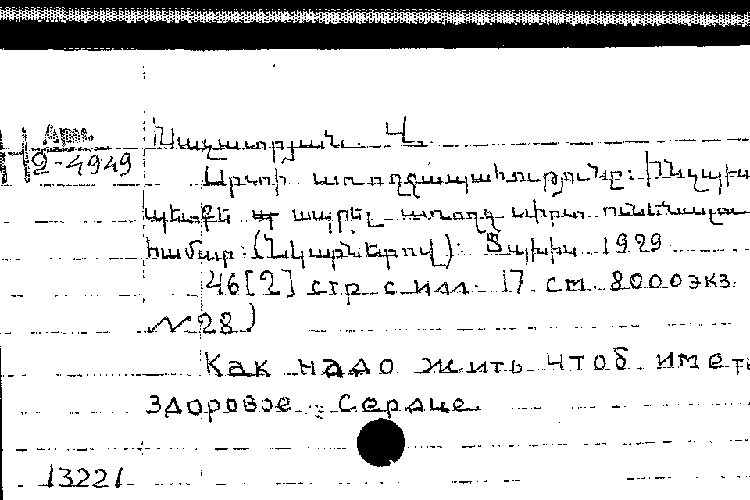 Арм.
Н 2-4949
Նազարտյան Վ.
Սրտի առողջապահությունը: Ինչպիս
պետքե ապրել առողջ սիրտ ունենալու
համար: (Նկարներով): Տպխիս 1929
46[2] стр с илл. 17 см 8000экз.
№28)
Как надо жить чтоб иметь
здоровое сердце.
13221